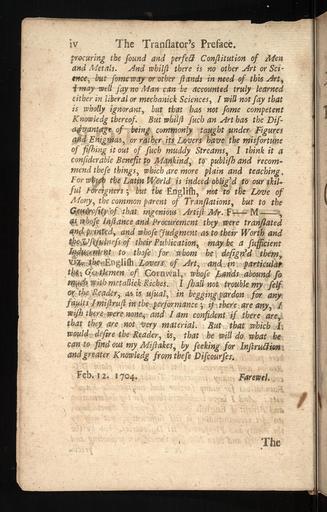 iv The Tranſlator's Preface.
procuring the ſound and perfect Conſtitution of Men
and Metals. And whilſt there is no other Art or Sci-
ence, but ſome way or other ſtands in need of this Art,
I may well ſay no Man can be accounted truly learned
either in liberal or mechanick Sciences, I will not ſay that
is wholly ignorant, but that has not ſome competent
Knowledg thereof. But whilſt ſuch an Art has the Diſ-
advantage of being commonly taught under Figures
and Enigmas, or rather its Lovers have the misfortune
of fiſhing it out of ſuch muddy Streams, I think it a
conſiderable Benefit to Mankind, to publiſh and recom-
mend theſe things, which are more plain and teaching.
For which the Latin World is indeed oblig'd to our ſkil-
ful Foreigners; but the Engliſh, not to the Love of
Many, the common parent of Tranſlations, but to the
Generoſity of that ingenious Artiſt Mr. F—— M——,
at whoſe Inſtance and Procurement they were tranſlated
and printed, and whoſe Judgment as to their Worth and
the Uſefulneſs of their Publication, may be a ſufficient
Inducement to thoſe for whom he deſign'd them,
viz. the Engliſh Lovers of Art, and in particular
the Gentlemen of Cornwal, whoſe Lands abound ſo
much with metallick Riches. I ſhall not trouble my ſelf
or the Reader, as is uſual, in begging pardon for any
faults I miſtruſt in the performance; if there are any, I
wiſh there were none, and I am confident if there are,
that they are not very material. But that which I
would deſire the Reader, is, that he will do what he
can to find out my Miſtakes, by ſeeking for Inſtruction
and greater Knowledg from theſe Diſcourſes.
Feb. 12. 1704. Farewel.
The